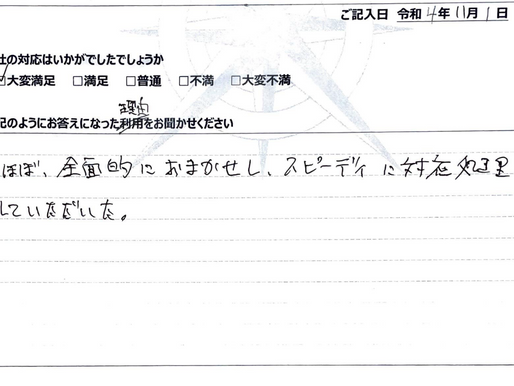 ご記入日 令和 4年 11月 1日
社の対応はいかがでしたでしょうか
☑大変満足 □満足 □普通 □不満 □大変不満
理由
記のようにお答えになった利用をお聞かせください
ほぼ、全面的におまかせし、スピーディに対応処理
していただいた。